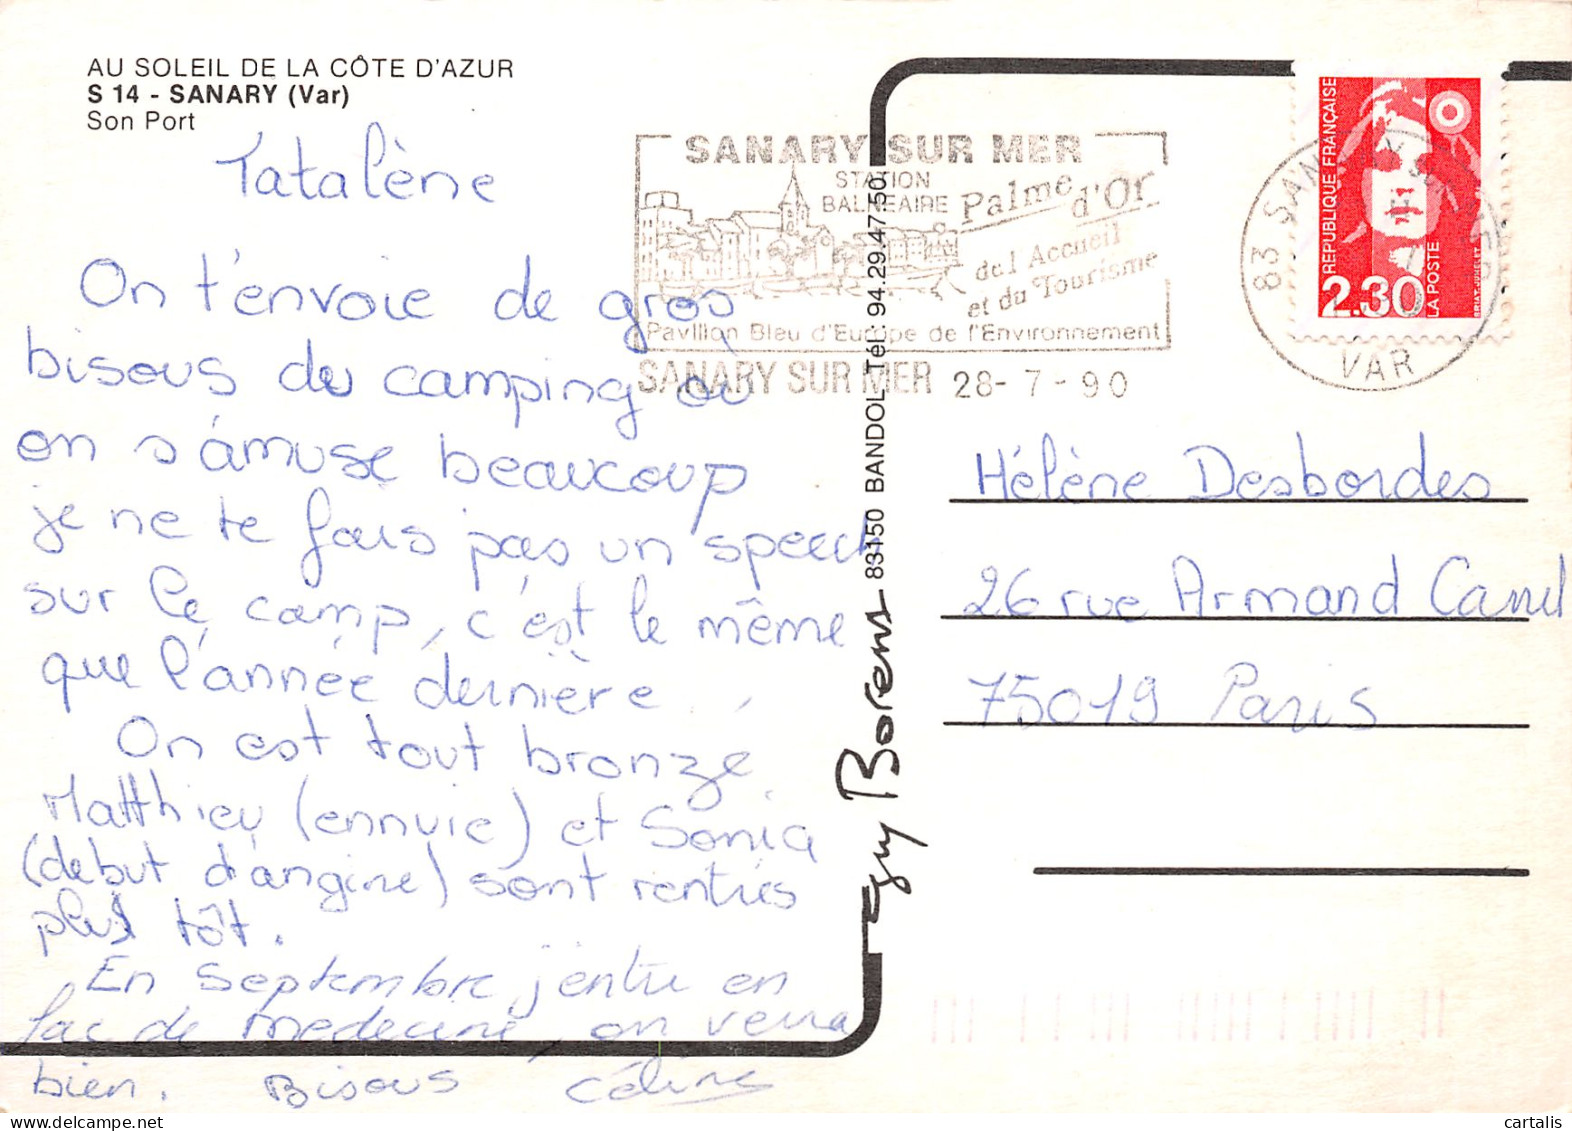 AU SOLEIL DE LA CÔTE D'AZUR
S 14 - SANARY (Var)
Son Port
Tatalène
On t'envoie de gros
bisous du camping où
on s'amuse beaucoup
je ne te fais pas un speech
sur le camp, c'est le même
que l'année dernière.
On est tout bronzé
Matthieu (ennuie) et Sonia
(debut d'angine) sont rentrés
plus tôt.
En Septembre j'entre en
fac de medecine, on verra
bien. Bisous Céline
SANARY SUR MER
STATION
BALNEAIRE
Palme d'Or
de l'Accueil
et du Tourisme
Pavillon Bleu d'Europe de l'Environnement
SANARY SUR MER 28-7-90
83 SANARY SUR MER
VAR
REPUBLIQUE FRANÇAISE
2.30
LA POSTE
BRIAT-JUMELET
Guy Borens 83150 BANDOL Tél: 94.29.47.50
Hélène Desbordes
26 rue Armand Carrel
75019 Paris
cartalis